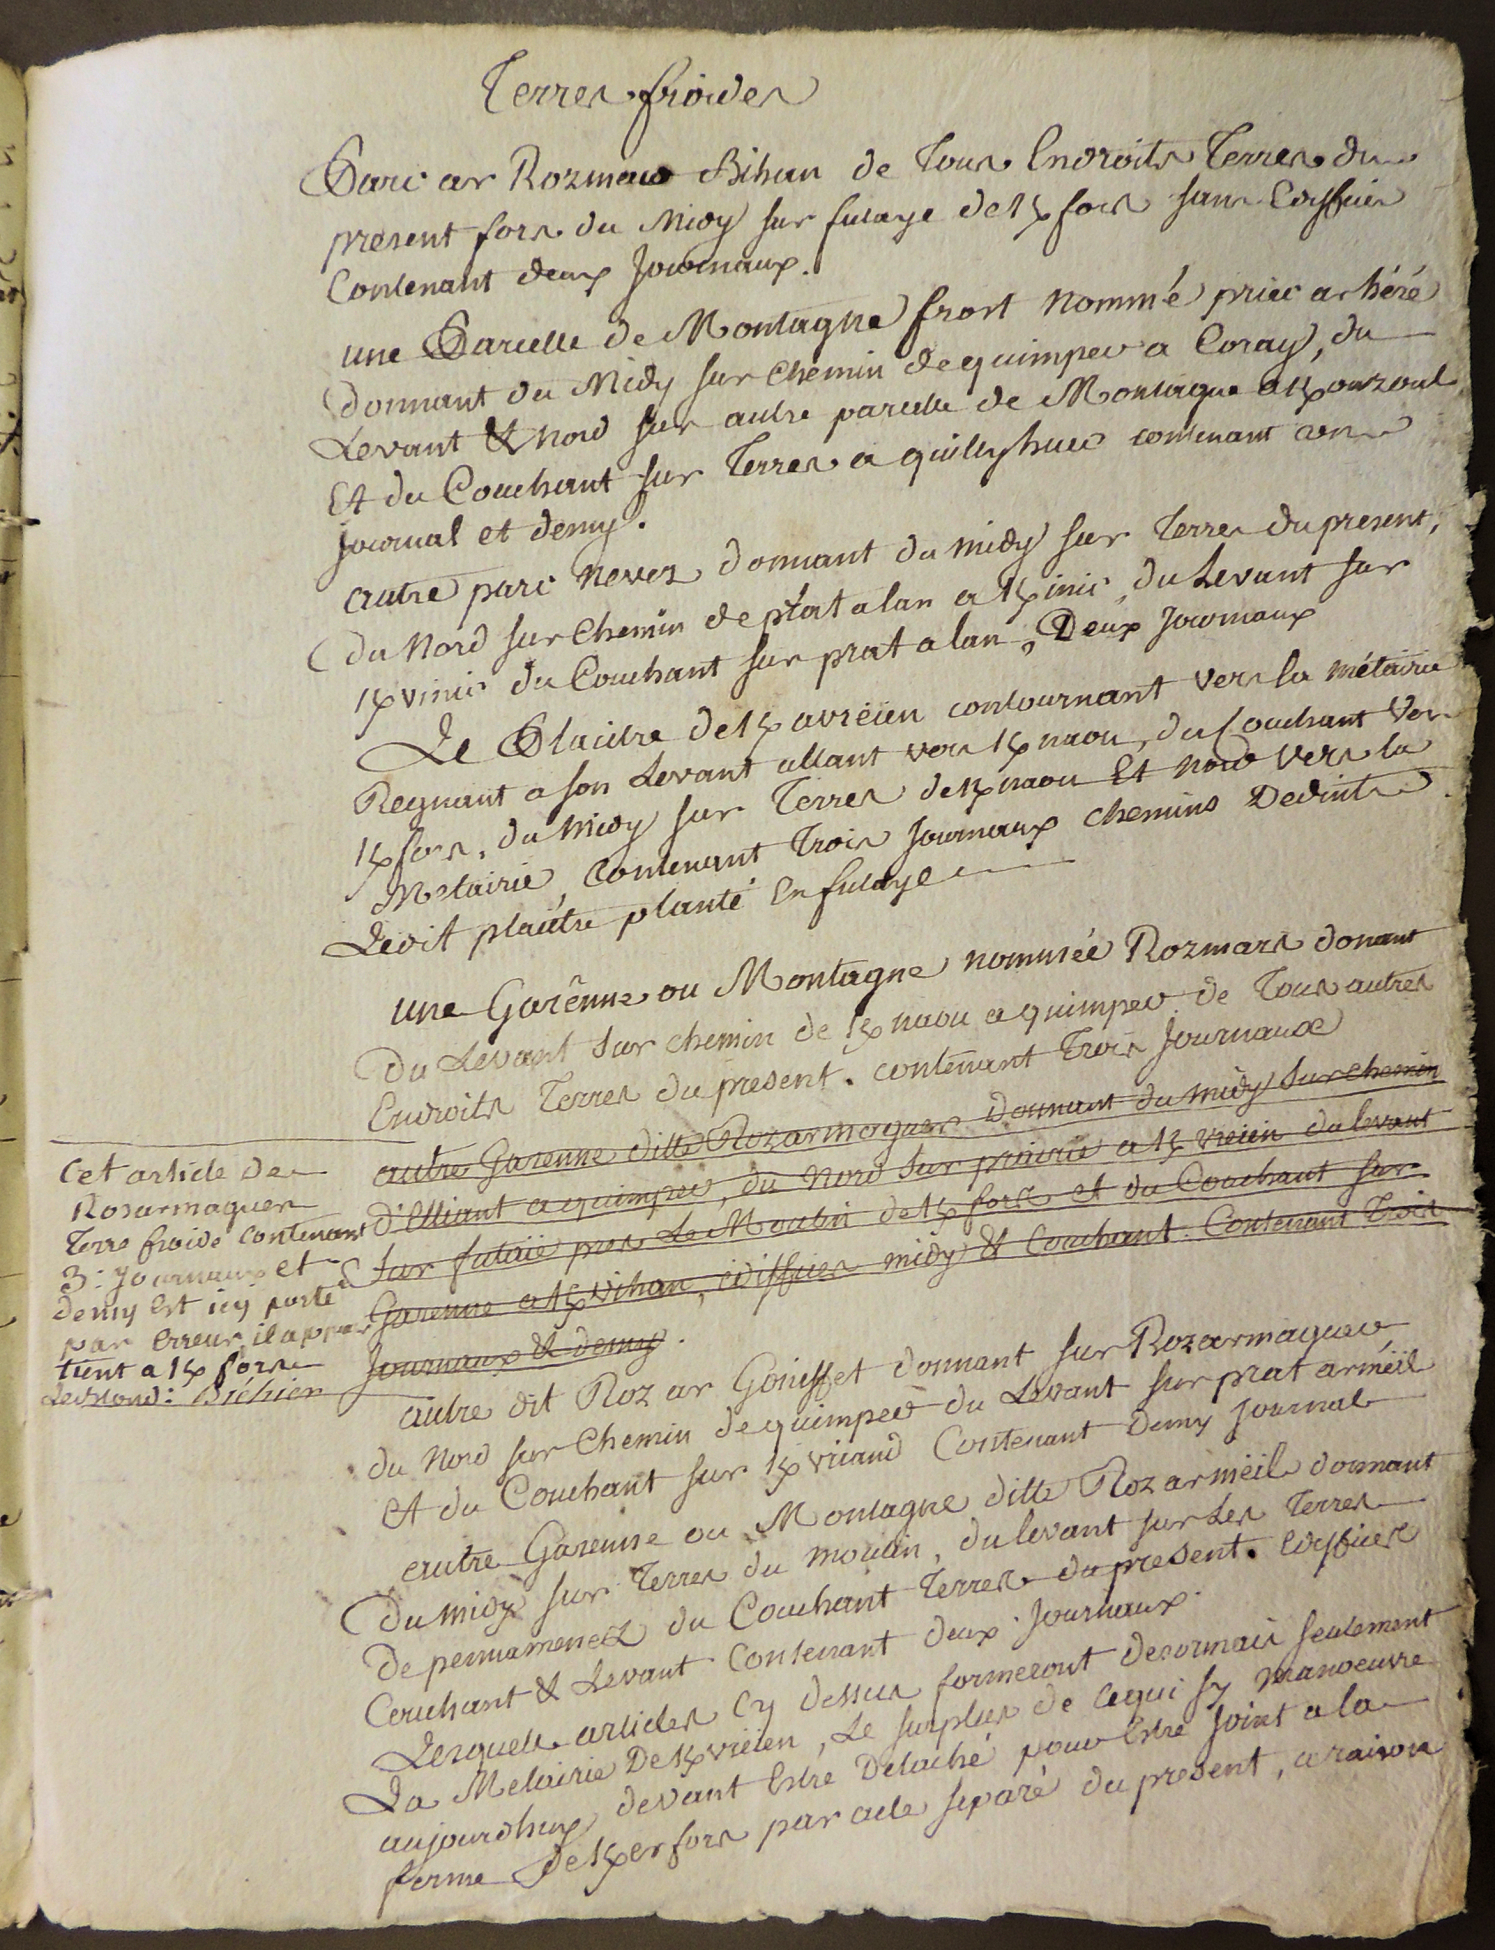 Terres froides
Parc ar Rozmaur Bihan de Tous Endroits Terres du
present fors du Midy sur futaye de Kfors sans Ediffices
Contenant deux Journaux.
une Parcelle de Montagne frost nommé priec ar héré
donnant du Midy sur chemin de quimper a Coray, du
Levant & nord sur autre parcelle de Montagne a Kouzoul
Et du Couchant sur Terres a quillyhuec contenant un
Journal et demy.
autre parc nevez donnant du midy sur Terres du present,
du Nord sur Chemin de prat alan a Kinic, du Levant sur
Kvinic du Couchant sur prat alan, Deux Journaux
Le Placitre de Kavreien contournant vers la métairie
Regnant a son Levant allant vers Knaou, du Couchant Vers
Kfors, du Midy sur Terres de Knaou Et nord Vers la
Metairie, Contenant Trois Journaux chemins Dedints
Ledit placitre planté En futaye
une Garênne ou Montagne nommée Rozmars donant
Du Levant sur chemin de Knaou a quimper de Tous autres
Endroits Terres du present. contenant Trois Journaux
autre Garenne ditte Rozarmoguer Donnant du midy sur chemin
d'Elliant a quimper, du Nord sur prairie a Kvreien du levant
sur futaïe pres Le Moulin de Kfors et du Couchant sur
Garenne a Kvihan, ediffices midy & Couchant. Contenant Trois
Journaux & demy.
Cet article de
Rosarmoguer
Terre froide contenant
3: Journaux et
demy est icy porté
par Erreur, il appar
tient a Kfors
Lednoud: Bichien
autre dit Roz ar Goueffet donnant sur Rozarmaguer
du Nord sur Chemin de quimper du Levant sur prat arméil
et du Couchant sur Kvriand Contenant Demy Journal
autre Garenne ou Montagne ditte Roz armëil donnant
du midy sur Terres du moulin, du levant sur Les Terres
de pennamenez du Couchant Terres du present. Ediffices
Couchant & Levant Contenant deux Journaux.
Lesquels articles Cy dessus formeront desormais seulement
La Metairie De Kvreien, Le surplus de cequi sy manoeuvre
aujourdhuy devant Estre Detaché pour Estre joint a la
ferme De Kerfors par acte separé du present, a raison